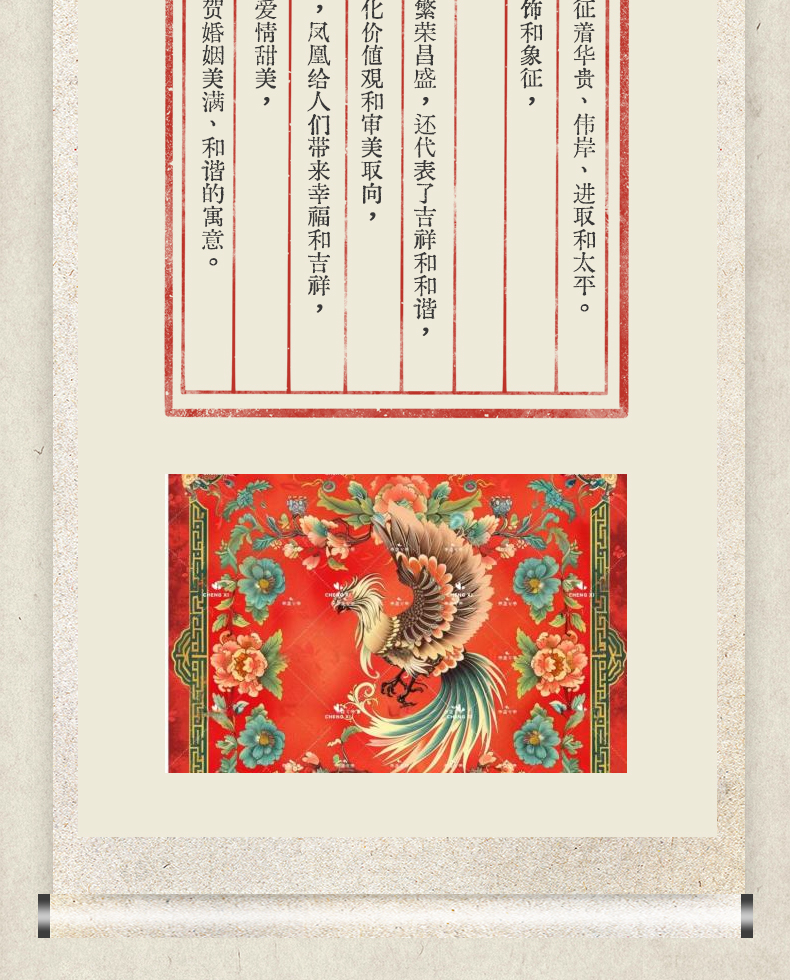 征着华贵、伟岸、进取和太平。
饰和象征，
繁荣昌盛，还代表了吉祥和和谐，
化价值观和审美取向，
，凤凰给人们带来幸福和吉祥，
爱情甜美，
贺婚姻美满、和谐的寓意。
CHENG XI
CHENG XI
CHENG XI
CHENG XI
CHENG XI
CHENG XI